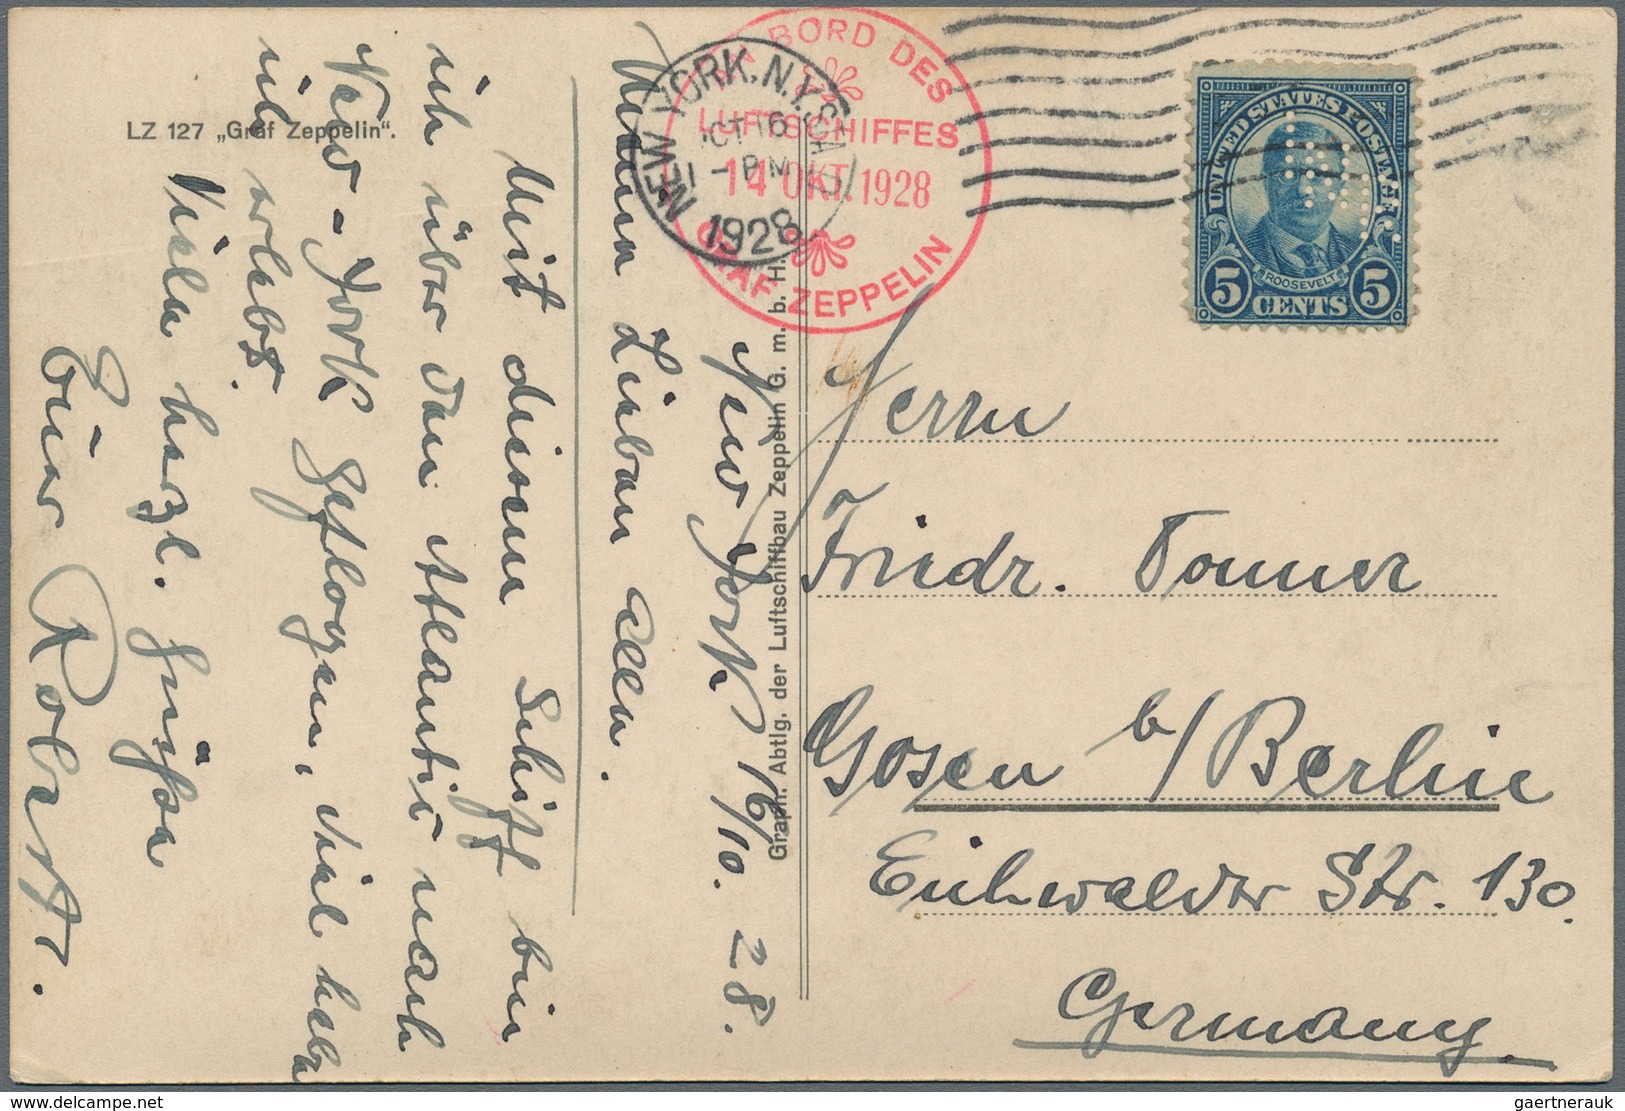 LZ 127 „Graf Zeppelin“.
AN BORD DES
LUFTSCHIFFES
14 OKT. 1928
GRAF ZEPPELIN
NEW YORK, N.Y.
OCT 16
1 - PM
1928
UNITED STATES POSTAGE
ROOSEVELT
5 CENTS 5
Graph. Abtlg. der Luftschiffbau Zeppelin G. m. b. H.
New York 16/10. 28.
Meine Lieben allen.
Mit diesem Schiff bin
ich über den Atlantic nach
New-York geflogen, viel habe
ich erlebt.
Viele herzl. Grüsse
Euer Robert.
Herrn
Friedr. Tonner
Gosen b/ Berlin
Eichwalder Str. 130.
Germany.
gaertnerauk @ delcampe.net